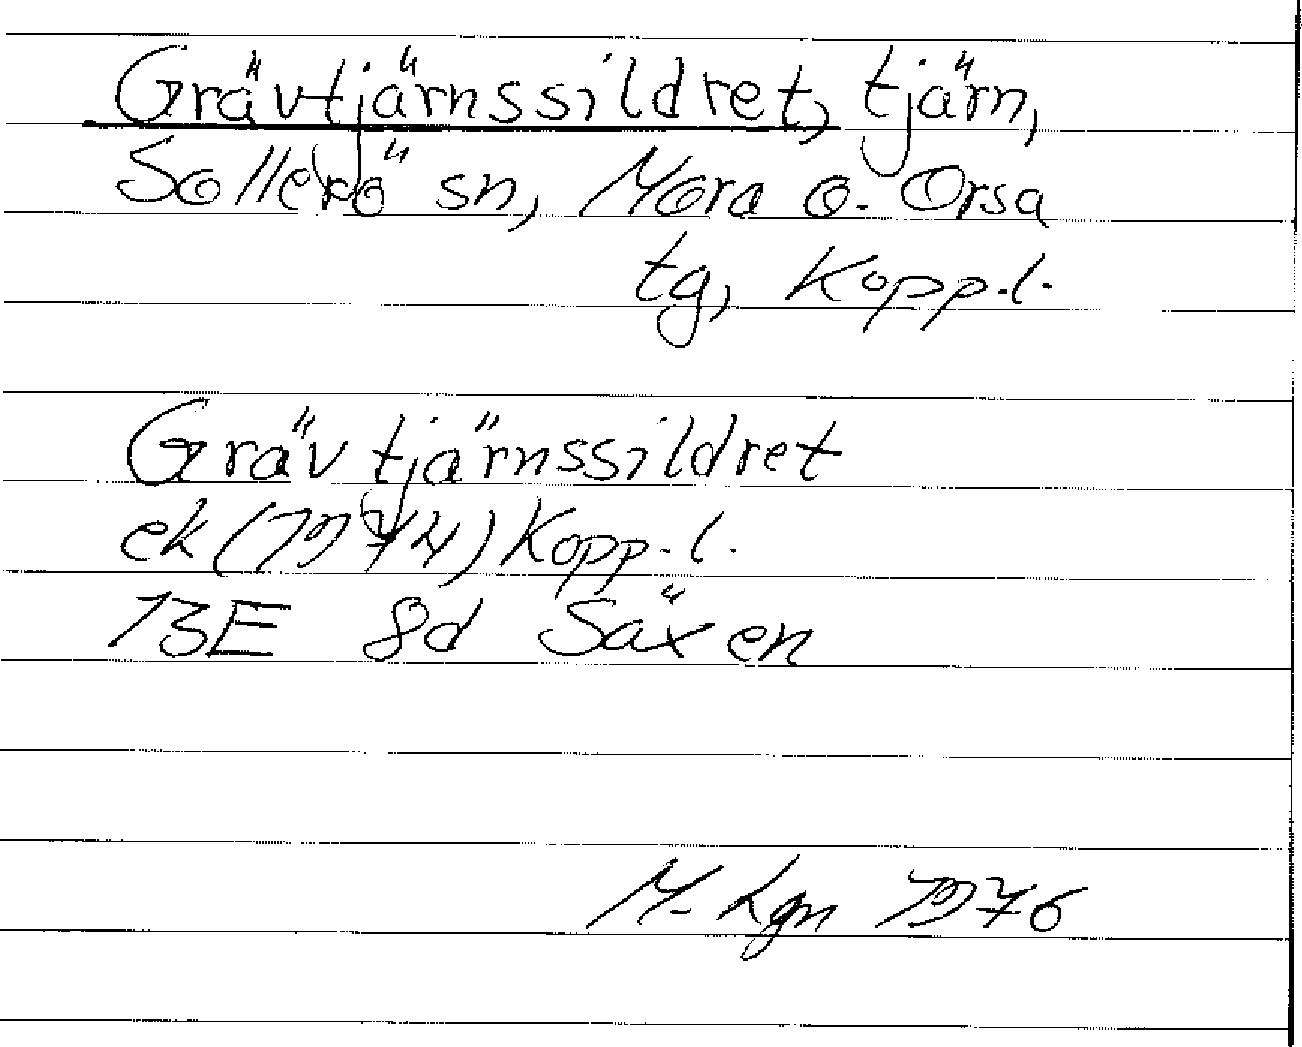 Grävtjärnssildret, tjärn,
Sollerö sn, Mora o. Orsa
tg, Kopp.l.
Grävtjärnssildret
ek (1974) Kopp.l.
13E 8d Säxen
M. Lgn 1976